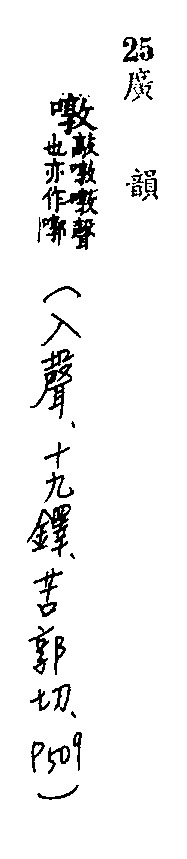 25 廣韻
噋
敲噋噋聲
也亦作㗥
(入聲、十九鐸、苦郭切、P509)